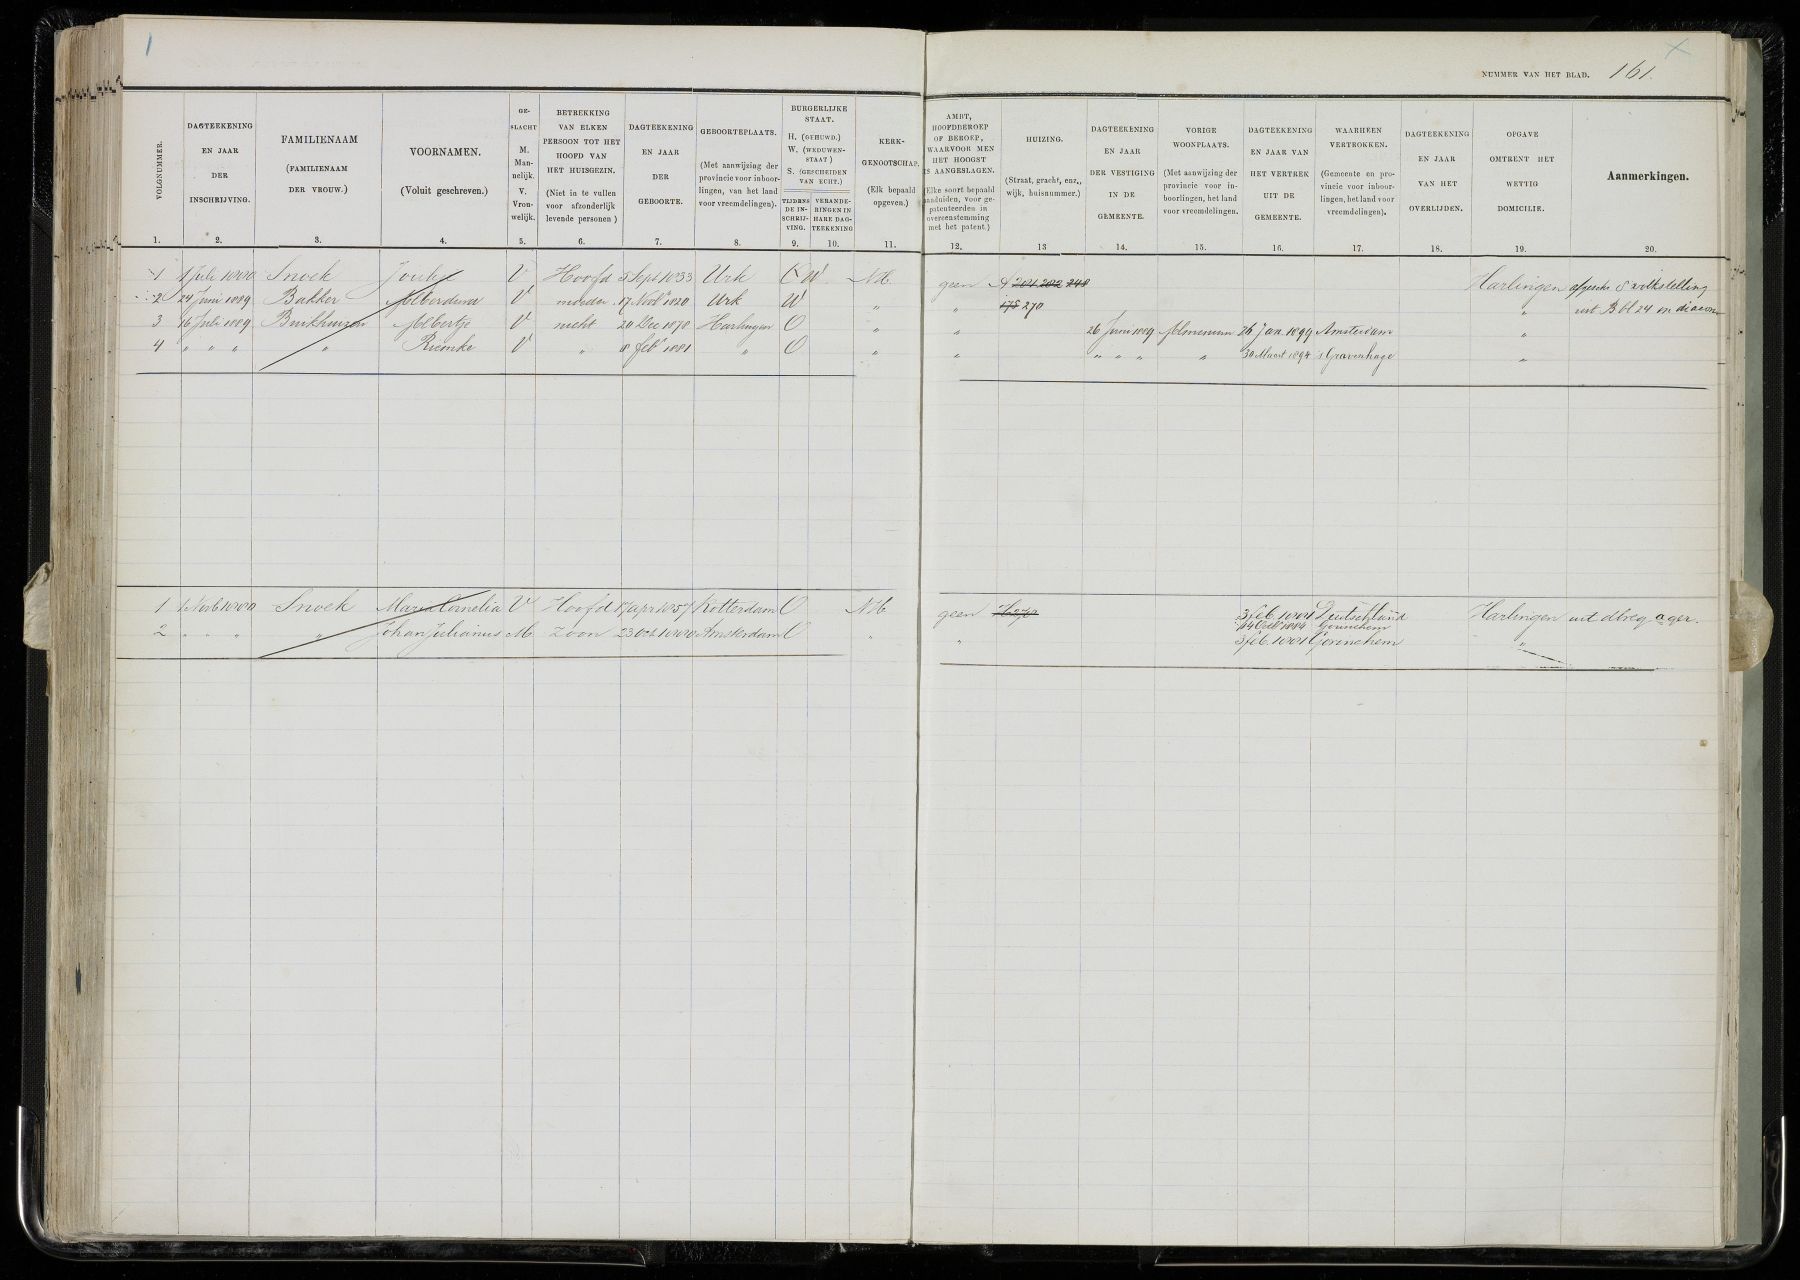 1
NUMMER VAN HET BLAD. 161.
VOLGNUMMER.
DAGTEEKENING EN JAAR DER INSCHRIJVING.
FAMILIENAAM (FAMILIENAAM DER VROUW.)
VOORNAMEN. (Voluit geschreven.)
GE-SLACHT M. Man-nelijk. V. Vrou-welijk.
BETREKKING VAN ELKEN PERSOON TOT HET HOOFD VAN HET HUISGEZIN. (Niet in te vullen voor afzonderlijk levende personen)
DAGTEEKENING EN JAAR DER GEBOORTE.
GEBOORTEPLAATS. (Met aanwijzing der provincie voor inboor-lingen, van het land voor vreemdelingen).
BURGERLIJKE STAAT. H. (GEHUWD.) W. (WEDUWEN-STAAT) S. (GESCHEIDEN VAN ECHT.)
TIJDENS DE IN-SCHRIJ-VING.
VERANDE-RINGEN IN HARE DAG-TEEKENING
KERK-GENOOTSCHAP. (Elk bepaald opgeven.)
AMBT, HOOFDBEROEP OF BEROEP, WAARVOOR MEN HET HOOGST IS AANGESLAGEN. (Elke soort bepaald aanduiden, voor ge-patenteerden in overeenstemming met het patent.)
HUIZING. (Straat, gracht, enz., wijk, huisnummer.)
DAGTEEKENING EN JAAR DER VESTIGING IN DE GEMEENTE.
VORIGE WOONPLAATS. (Met aanwijzing der provincie voor in-boorlingen, het land voor vreemdelingen.
DAGTEEKENING EN JAAR VAN HET VERTREK UIT DE GEMEENTE.
WAARHEEN VERTROKKEN. (Gemeente en pro-vincie voor inboor-lingen, het land voor vreemdelingen).
DAGTEEKENING EN JAAR VAN HET OVERLIJDEN.
OPGAVE OMTRENT HET WETTIG DOMICILIE.
Aanmerkingen.
1. 2. 3. 4. 5. 6. 7. 8. 9. 10. 11. 12. 13 14. 15. 16. 17. 18. 19. 20.
1 1 Juli 1880 Snoek V Hoofd 5 Sept 1833 Urk W NH. geen A 204 202 248 Harlingen
2 24 Juni 1889 Bakker Alberdina V moeder 17 Nov 1820 Urk W " " 178 270 " uit B bl 24
3 16 Juli 1889 Buikhuizen Albertje V nicht 20 Dec 1878 Harlingen O " " 26 Juni 1889 Almenum 26 Jan. 1899 Amsterdam "
4 " " " " Riemke V " 8 feb 1881 " O " " " " " " 30 Maart 1894 's Gravenhage "
1 1 Novb 1880 Snoek Maria Cornelia V Hoofd 17 Apr 1857 Rotterdam O NH geen H 270 3 feb. 1881 Duitschland Harlingen
Gorinchem
2 " " " " Johan Julianus M. Zoon 23 Oct 1880 Amsterdam O " " 3 feb. 1881 Gorinchem "